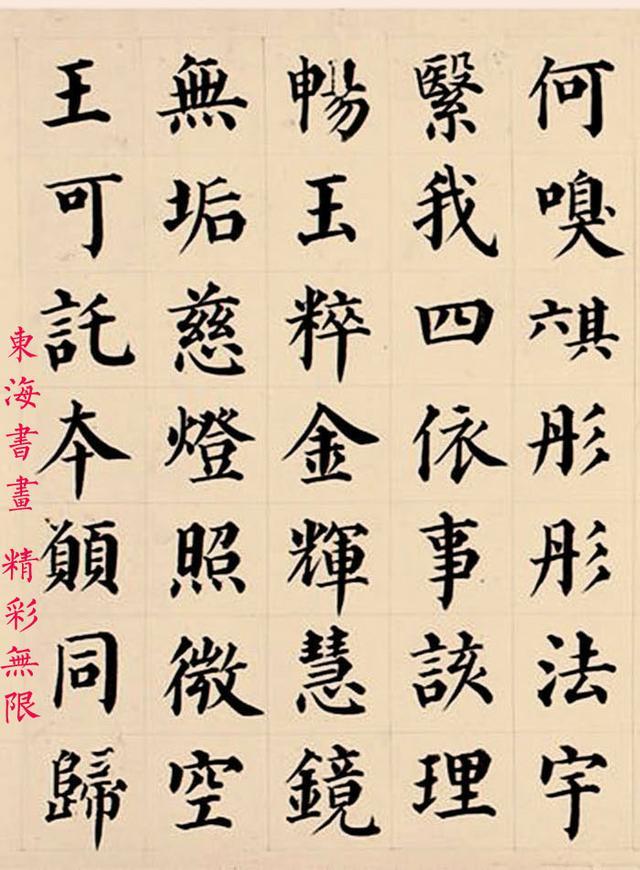 何嗅其六彤彤法宇
繄我四依事該理
暢玉粹金輝慧鏡
無垢慈燈照微空
王可託本願同歸
東海書畫 精彩無限